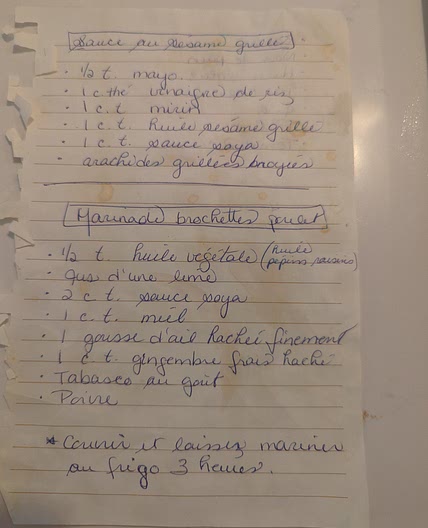 Sauce au sésame grillé
· 1/2 t. mayo
· 1 c. thé vinaigre de riz
· 1 c. t. mirin
· 1 c. t. huile sésame grillé
· 1 c. t. sauce soya
· arachides grillées broyées
Marinade brochettes poulet
· 1/2 t. huile végétale (huile pépins raisins)
· jus d'une lime
· 2 c t. sauce soya
· 1 c. t. miel
· 1 gousse d'ail haché finement
· 1 c t. gingembre frais haché
· Tabasco au goût
· Poivre
* Couvrir et laissez mariner
au frigo 3 heures.